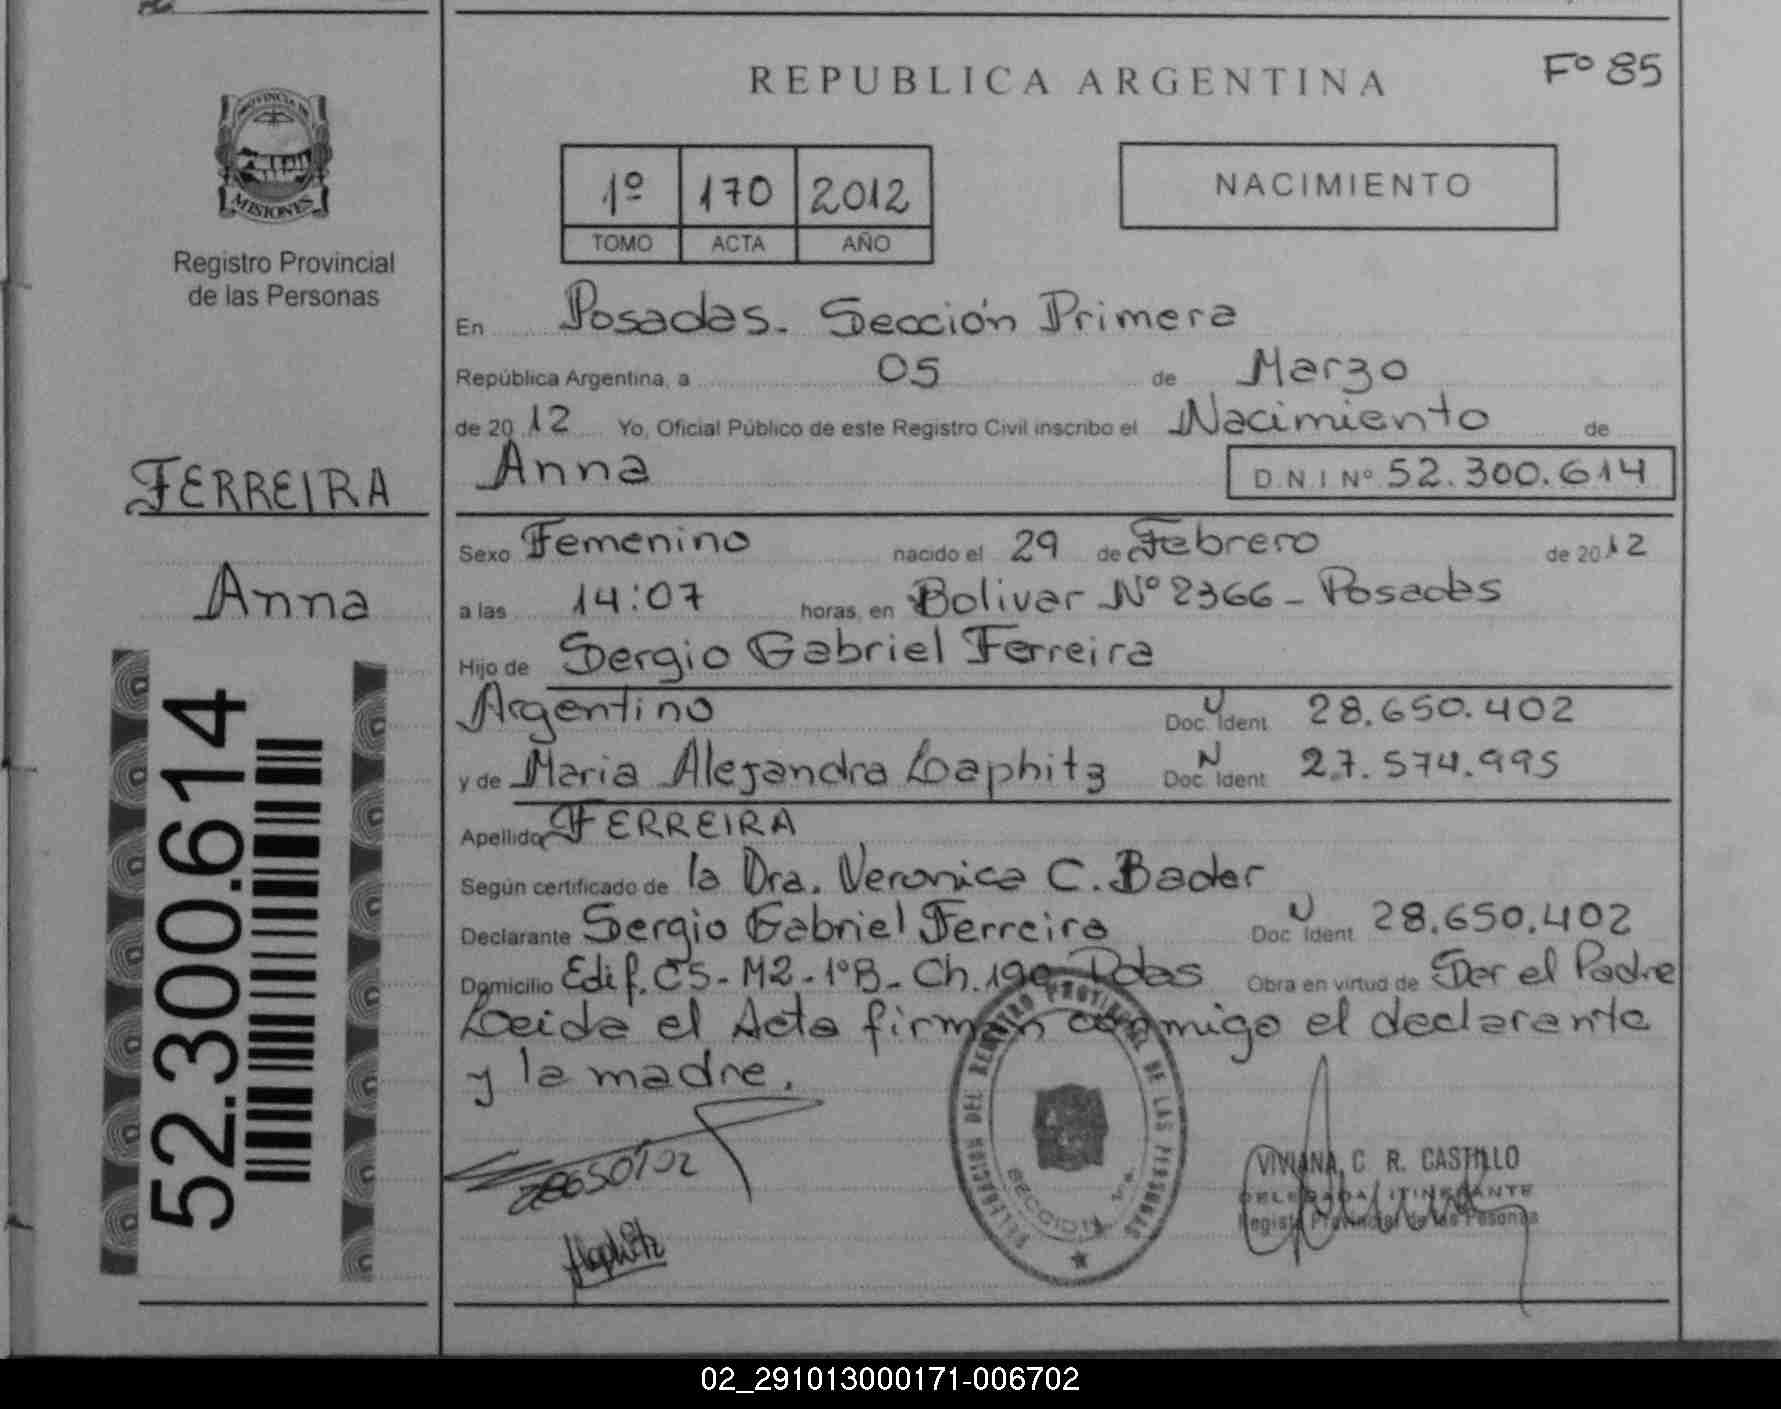 REPUBLICA ARGENTINA
Fº 85
PROVINCIA DE
MISIONES
Registro Provincial
de las Personas
1º 170 2012
TOMO ACTA AÑO
NACIMIENTO
En Posadas. Sección Primera
República Argentina, a 05 de Marzo
de 20 12 Yo, Oficial Público de este Registro Civil inscribo el Nacimiento de
Anna
D.N.I Nº 52.300.614
FERREIRA
Anna
52.300.614
Sexo Femenino nacido el 29 de Febrero de 20 12
a las 14:07 horas, en Bolivar Nº 2366 - Posadas
Hijo de Sergio Gabriel Ferreira
Argentino Doc. N Ident 28.650.402
y de Maria Alejandra Loaphitz Doc. N Ident 27.574.995
Apellido FERREIRA
Según certificado de la Dra. Veronica C. Bader
Declarante Sergio Gabriel Ferreira Doc N Ident 28.650.402
Domicilio Edif. C5 - M2 - 1ºB - Ch. 190 Pdas Obra en virtud de Ser el Padre
Leida el Acta firman conmigo el declarante
y la madre.
DELEGACION DEL REGISTRO PROVINCIAL DE LAS PERSONAS
SECCION 1ra
VIVIANA C. R. CASTILLO
DELEGADA ITINERANTE
Registro Provincial de las Pesonas
02_291013000171-006702